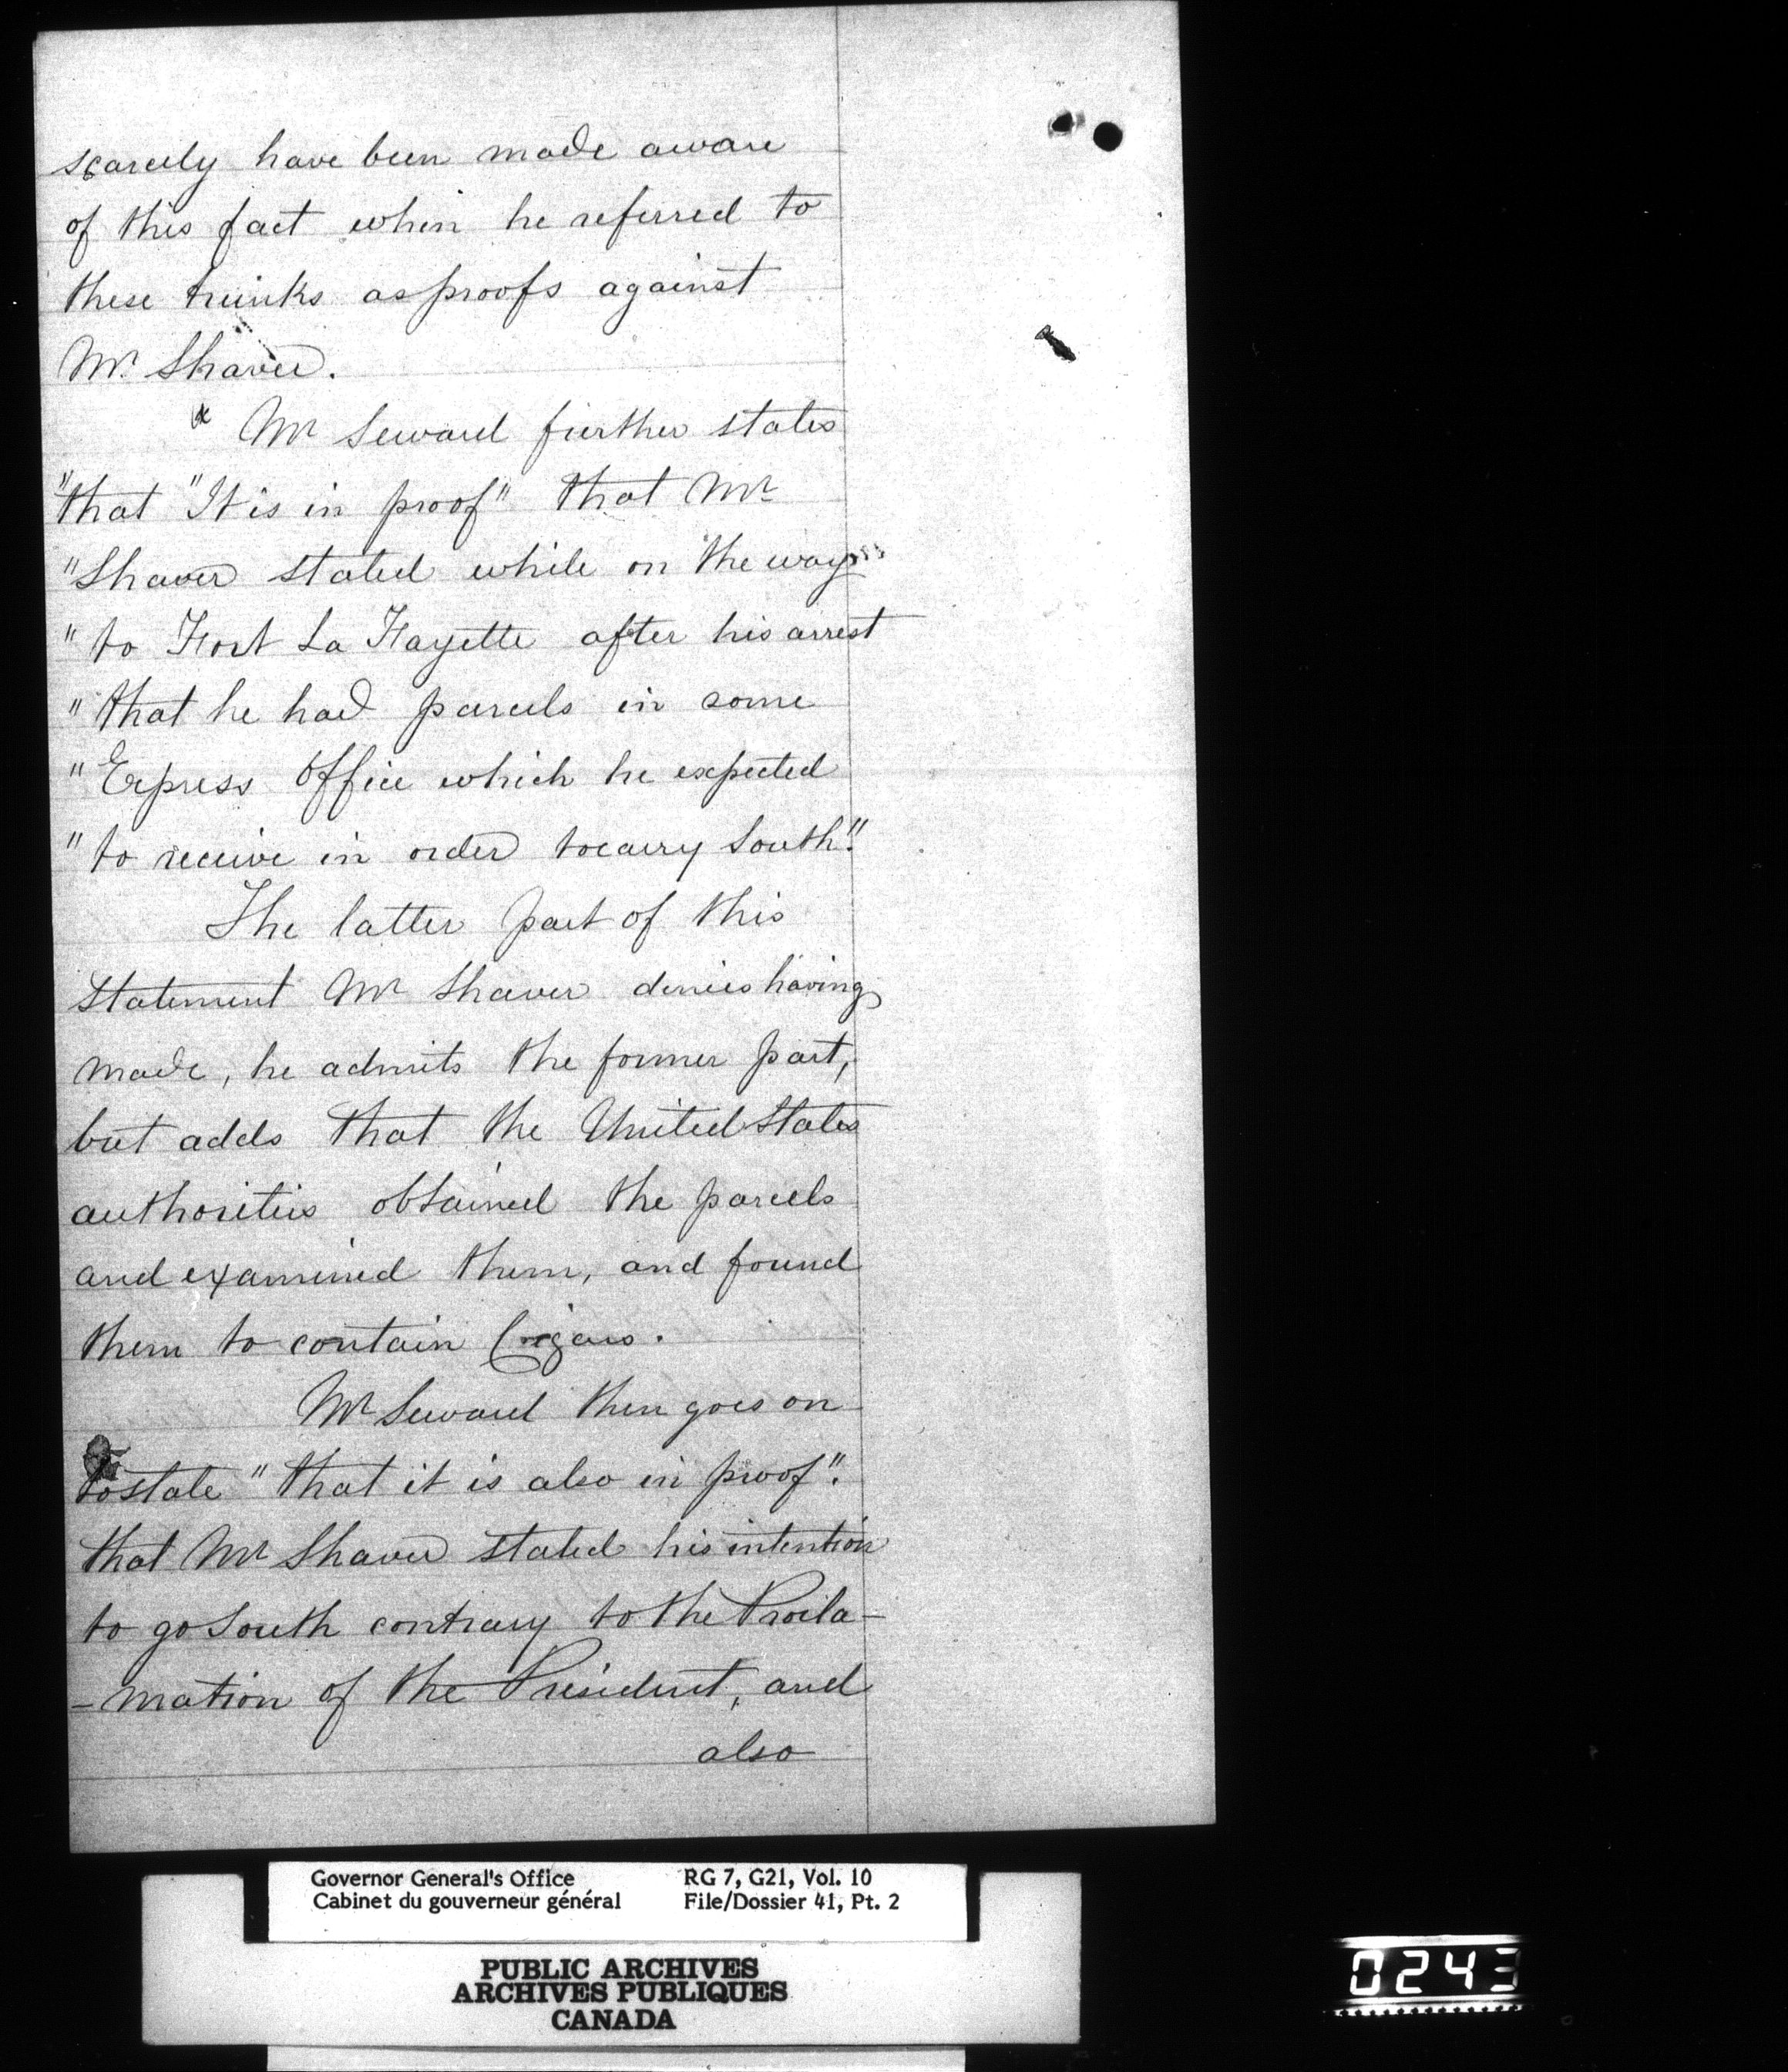 scarcely have been made aware
of this fact when he referred to
these trunks as proofs against
Mr. Shaver.
x Mr Seward further states
"that "It is in proof" that Mr
"Shaver stated while on the way
"to Fort La Fayette after his arrest
"that he had parcels in some
"Express Office which he expected
"to receive in order to carry South."
The latter part of this
statement Mr Shaver denies having
made, he admits the former part,
but adds that the United States
authorities obtained the parcels
and examined them, and found
them to contain Cigars.
Mr Seward then goes on
to state "that it is also in proof".
that Mr Shaver stated his intention
to go South contrary to the Procla-
-mation of the President, and
also
Governor General's Office RG 7, G21, Vol. 10
Cabinet du gouverneur général File/Dossier 41, Pt. 2
PUBLIC ARCHIVES
ARCHIVES PUBLIQUES
CANADA
0243